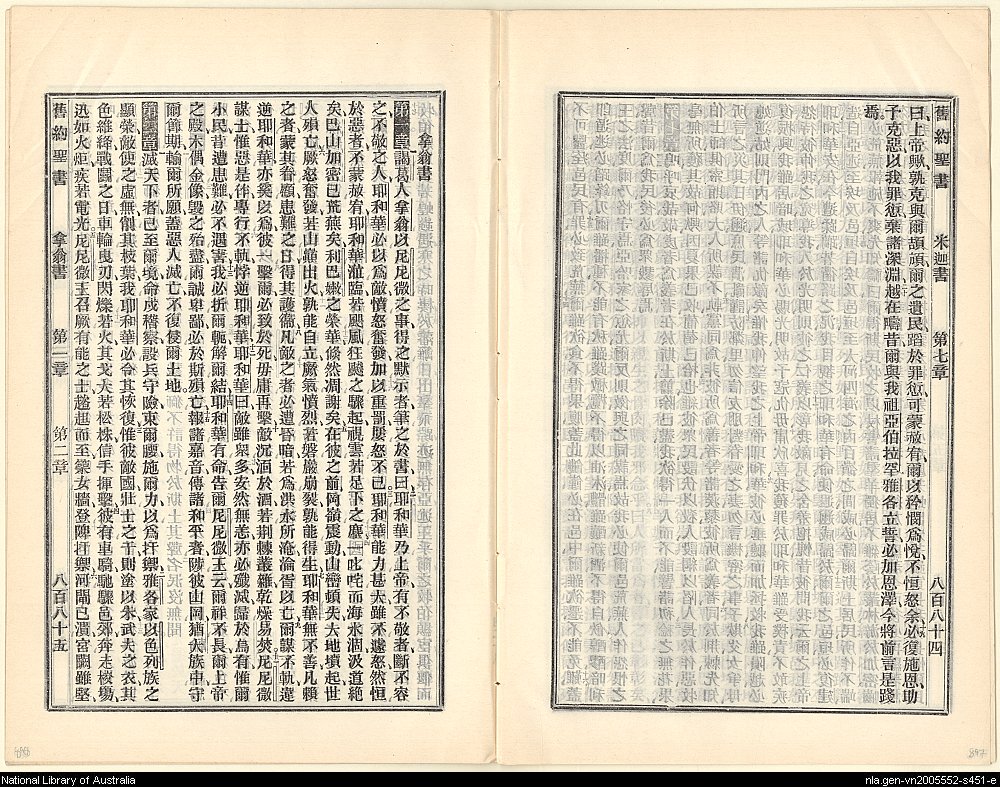 舊約聖書 米迦書 第七章 八百八十四
曰上帝歟孰克與爾頡頏爾之遺民蹈於罪愆可蒙赦宥爾以矜憫爲悅不恒怒余必復施恩助
予克惡以我罪愆棄諸深淵越在疇昔爾與我祖亞伯拉罕雅各立誓必加恩澤今將前言是踐
焉
拿翁書
第一章 謁葛人拿翁以尼尼微之事得之默示者筆之於書曰耶和華乃上帝有不敬者斷不容
之不敬之人耶和華必以爲敵憤怒奮發加以重罰屢怒不已耶和華能力甚大雖不遽怒然恒
於惡者不蒙赦宥耶和華涖臨若颶風狂飈之驟起視雲若足下之塵一叱咤而海水涸汲道絕
矣巴山加密已荒蕪矣利巴嫩之榮華倐然凋謝矣在彼之前岡嶺震動山巒頓失大地墳起世
人殞亡厥怒奮發若山藪出火孰能自立厥氣憤烈若磐巖崩裂孰能得生耶和華無不善凡賴
之者蒙其眷顧患難之日得其護衞凡敵之者必遭昏暗若爲洪水所淹淪胥以亡爾謀不軌違
逆耶和華亦奚以爲彼一擊爾必致於死毋庸再擊敵沉湎於酒若荆棘叢雜乾燥易焚尼尼微
謀士惟惡是作專行不軌悖逆耶和華耶和華曰敵雖衆多安然無恙亦必殲滅歸於烏有惟爾
小民昔遭患難必不遇害我必折爾軛解爾結耶和華有命告爾尼尼微王云爾祚不長爾上帝
之殿木偶金像毀之殆盡爾誠卑鄙必於斯殞亡報諸嘉音傳諸和平者陟彼山岡猶大族中守
爾節期輸爾所願蓋惡人滅亡不復侵爾土地
第二章 滅天下者已至爾境命戍稽察設兵守險束爾腰施爾力以爲扞禦雅各家以色列族之
顯榮敵使之虛無削其枝葉我耶和華必令其恢復惟彼敵國壯士之干則塗以朱武夫之衣其
色維絳戰鬭之日車輪曳刃閃爍若火其戈大若松株信手揮擊彼有車騎馳驟邑郊奔走棧塲
迅如火炬疾若電光尼尼微王召厥有能之士趦趄而至樂女牆登陴扞禦河閘已潰宫闕雖堅
舊約聖書 拿翁書 第一章 第二章 八百八十五
National Library of Australia
nla.gen-vn2005552-s451-e